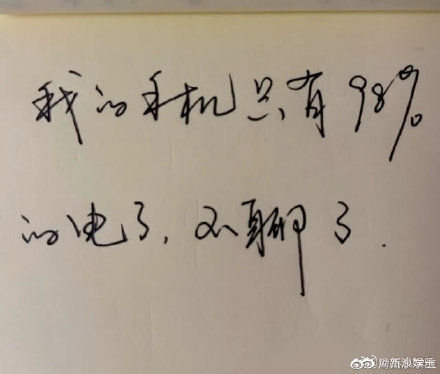 我的手机只有98%
的电了,不聊了.
@新浪娱乐